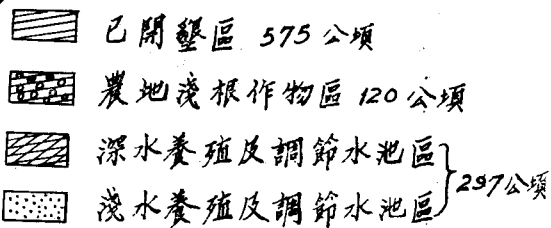 已開墾區 575公頃
農地淺根作物區 120公頃
深水養殖及調節水池區
淺水養殖及調節水池區
297公頃